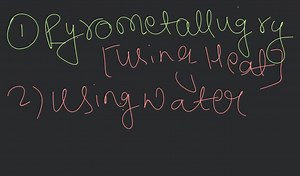 ① Pyrometallugry
[Using Heat]
2) Using water